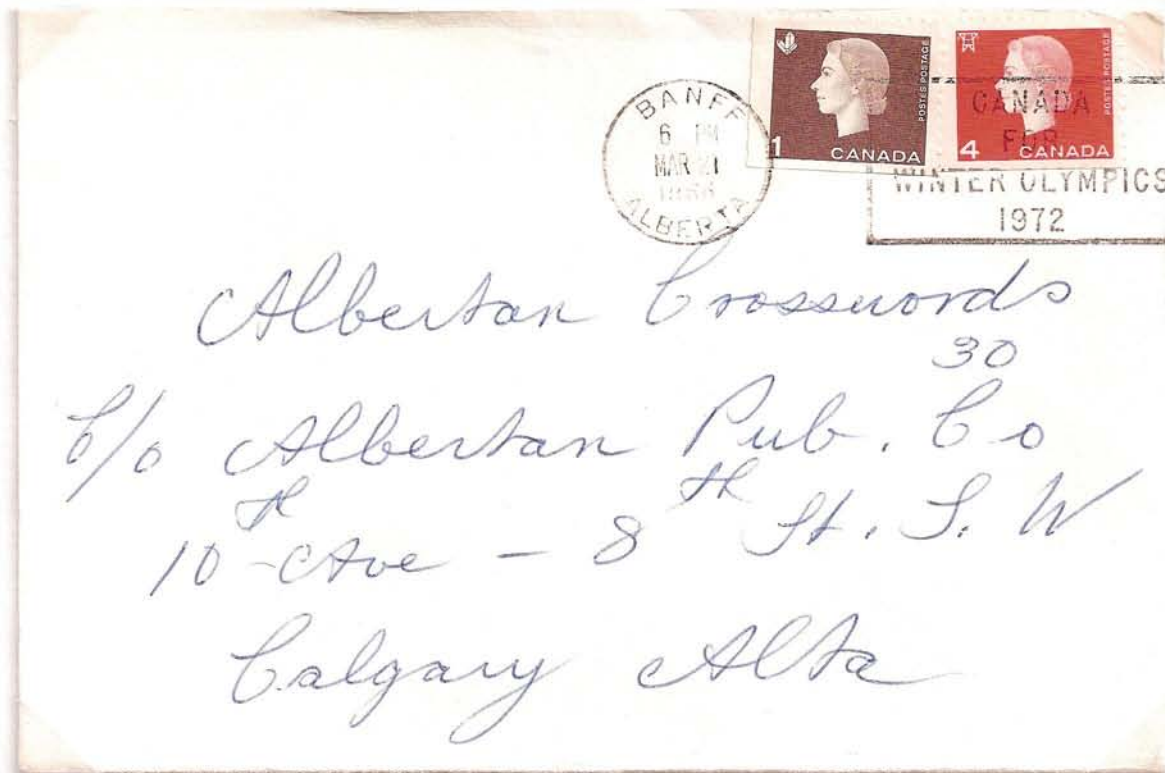 BANFF
6 PM
MAR 21
ALBERTA
1
CANADA
POSTES POSTAGE
4
CANADA
POSTES POSTAGE
CANADA
FOR
WINTER OLYMPICS
1972
Albertan Crosswords
30
c/o Albertan Pub. Co
10th Ave - 8th St. S. W
Calgary Alta